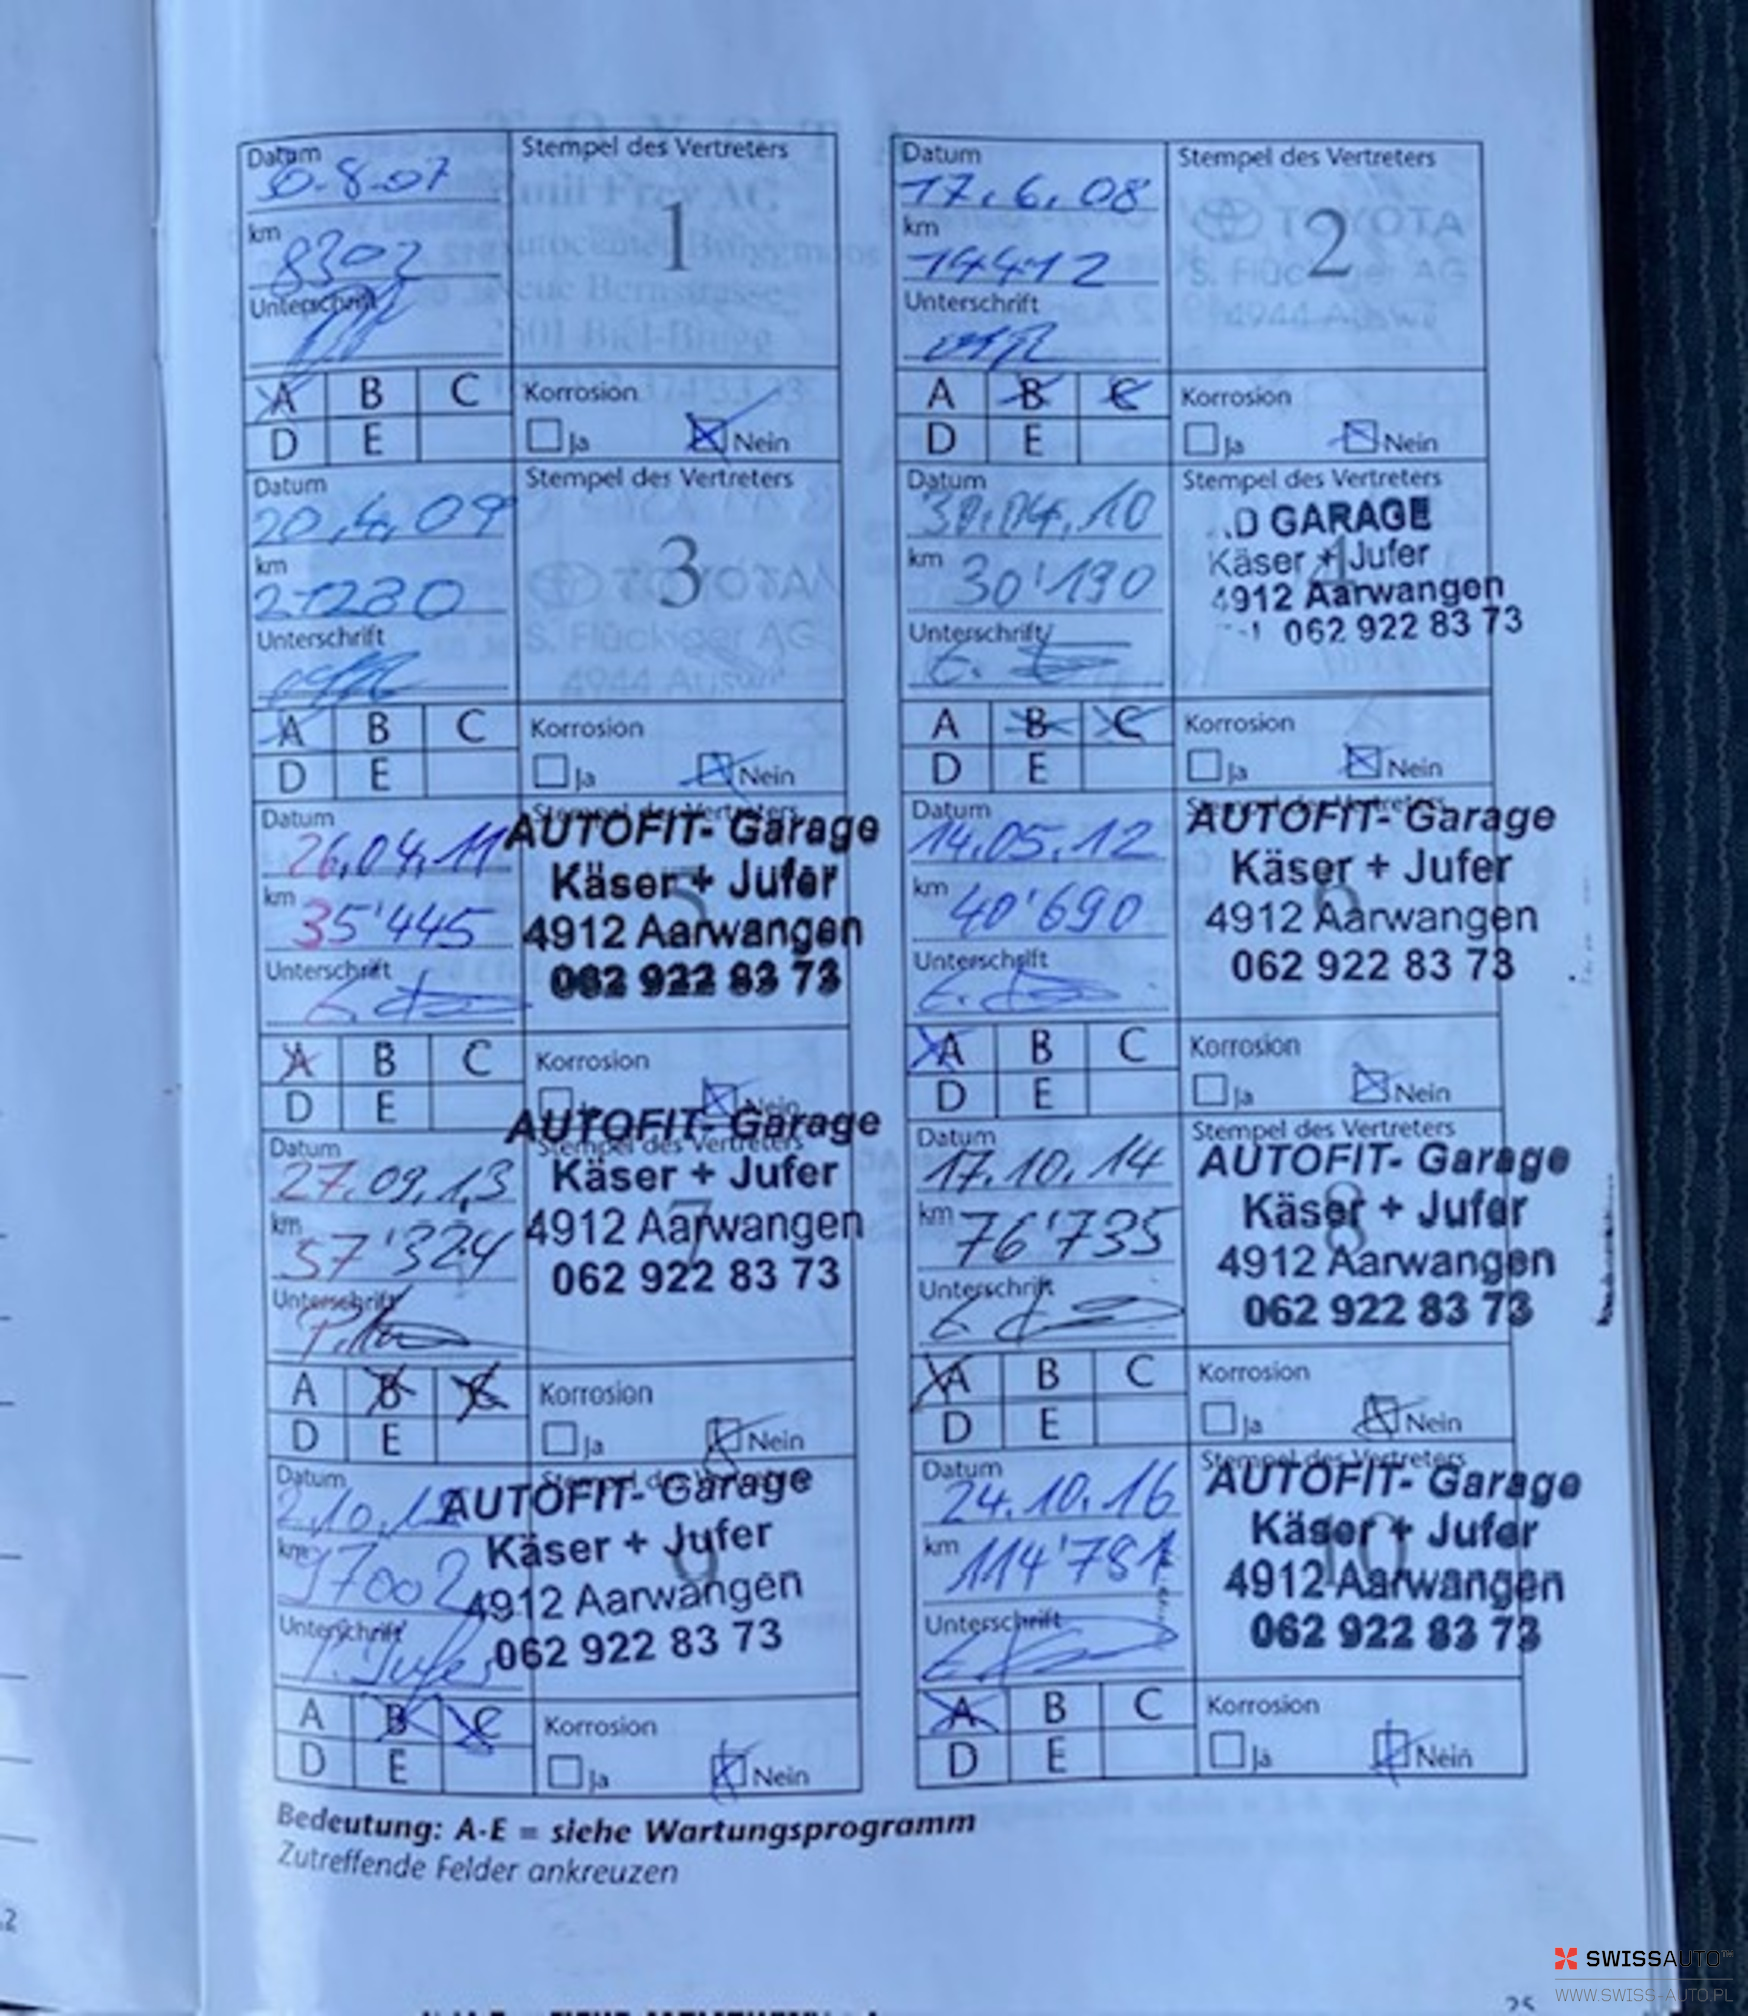 Datum
30.8.07
Stempel des Vertreters
1
km
8302
Unterschrift
A B C
D E
Korrosion
Ja Nein
Datum
17.6.08
Stempel des Vertreters
2
TOYOTA
S. Flückiger AG
4944 Auswil
km
14412
Unterschrift
A B C
D E
Korrosion
Ja Nein
Datum
20.4.09
Stempel des Vertreters
3
TOYOTA
S. Flückiger AG
4944 Auswil
km
21280
Unterschrift
A B C
D E
Korrosion
Ja Nein
Datum
30.04.10
Stempel des Vertreters
4
.D GARAGE
Käser + Jufer
4912 Aarwangen
062 922 83 73
km
30'190
Unterschrift
A B C
D E
Korrosion
Ja Nein
Datum
26.04.11
Stempel des Vertreters
5
AUTOFIT- Garage
Käser + Jufer
4912 Aarwangen
062 922 83 73
km
35'445
Unterschrift
A B C
D E
Korrosion
Nein
Datum
14.05.12
Stempel des Vertreters
6
AUTOFIT- Garage
Käser + Jufer
4912 Aarwangen
062 922 83 73
km
40'690
Unterschrift
A B C
D E
Korrosion
Ja Nein
Datum
27.09.13
Stempel des Vertreters
7
AUTOFIT- Garage
Käser + Jufer
4912 Aarwangen
062 922 83 73
km
57'324
Unterschrift
A B C
D E
Korrosion
Ja Nein
Datum
17.10.14
Stempel des Vertreters
8
AUTOFIT- Garage
Käser + Jufer
4912 Aarwangen
062 922 83 73
km
76'735
Unterschrift
A B C
D E
Korrosion
Ja Nein
Datum
Stempel des Vertreters
9
AUTOFIT- Garage
Käser + Jufer
4912 Aarwangen
062 922 83 73
km
97002
Unterschrift
P. Jufer
A B C
D E
Korrosion
Ja Nein
Datum
24.10.16
Stempel des Vertreters
10
AUTOFIT- Garage
Käser + Jufer
4912 Aarwangen
062 922 83 73
km
114'781
Unterschrift
A B C
D E
Korrosion
Ja Nein
Bedeutung: A-E = siehe Wartungsprogramm
Zutreffende Felder ankreuzen
25
SWISSAUTO
WWW.SWISS-AUTO.PL